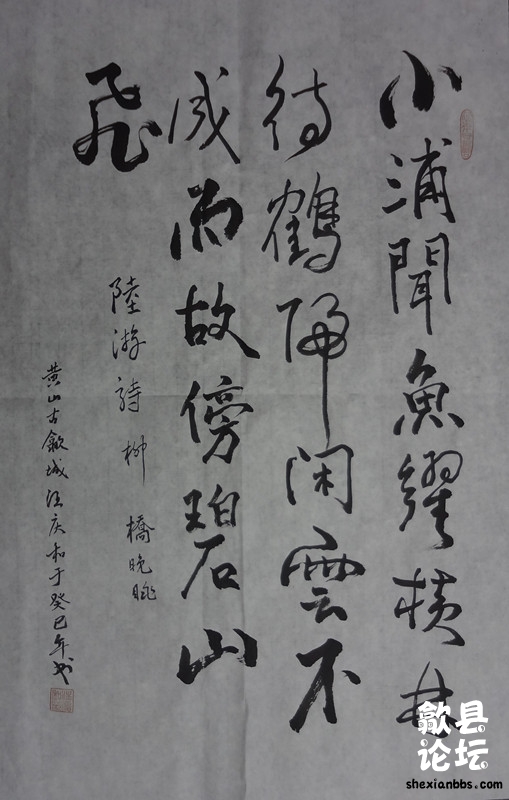 小浦聞魚躍橫林
待鶴歸閑雲不
成雨故傍碧山
飛
陸游詩 柳橋晚眺
黄山古歙城汪庆和于癸巳年书
歙县
论坛
shexianbbs.com